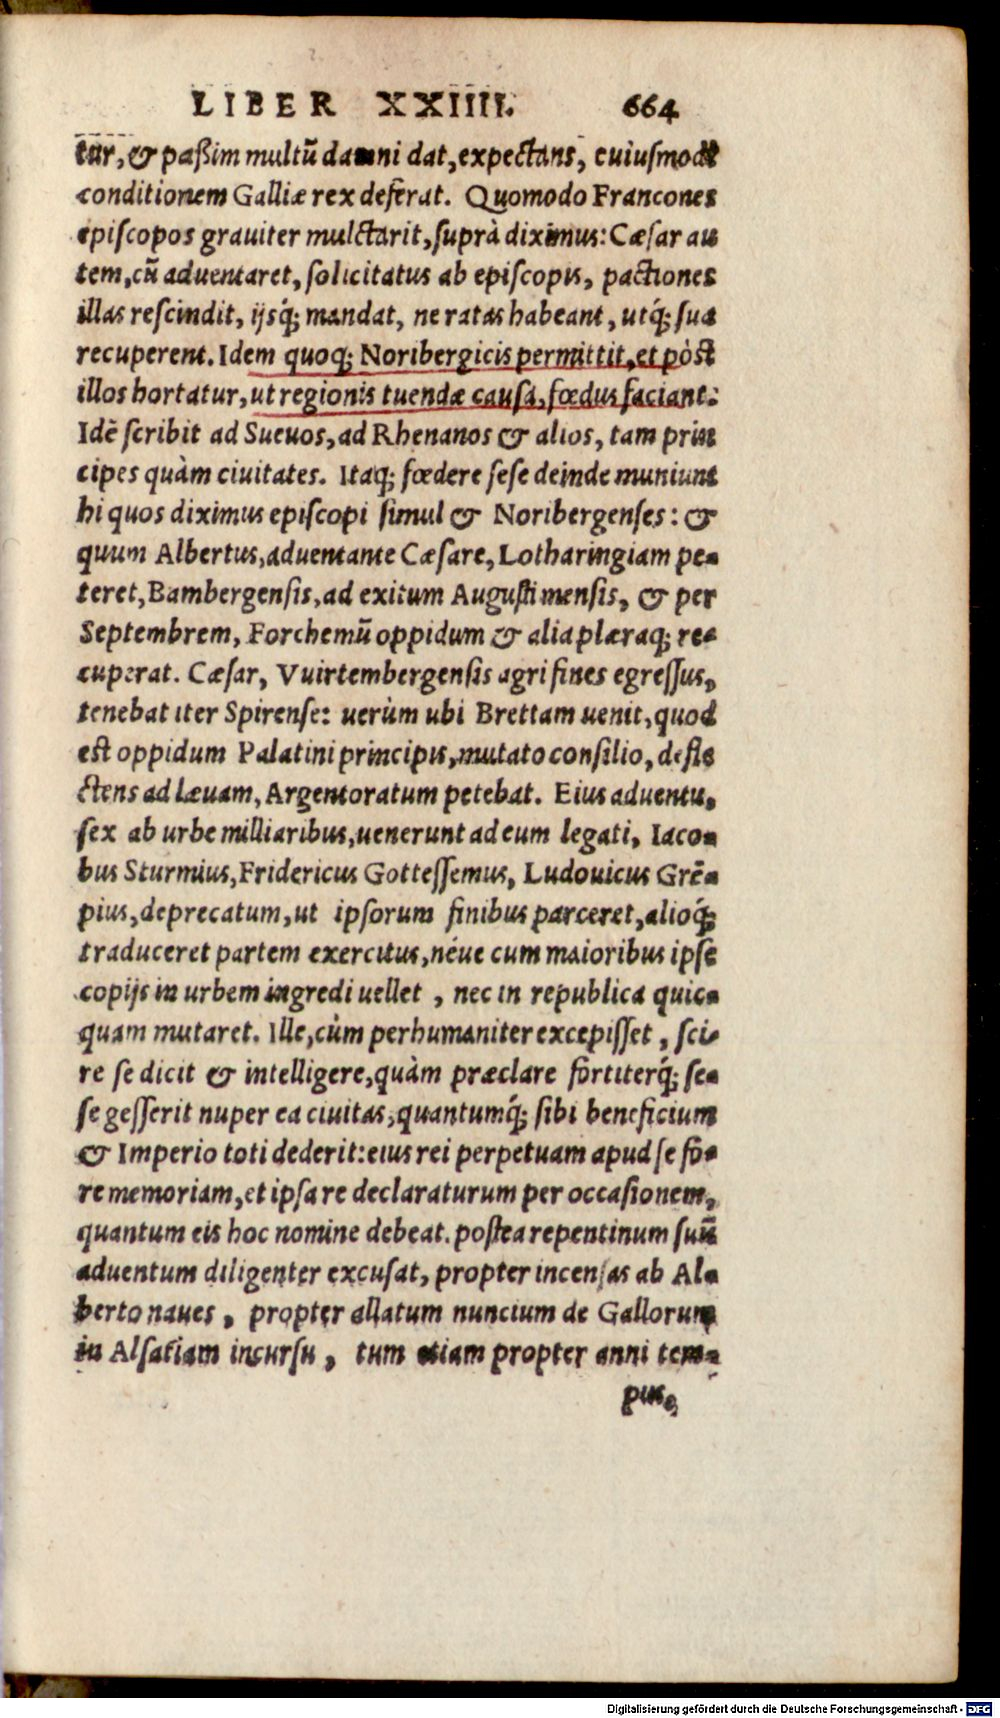 LIBER XXIIII. 664
tur, & paßim multũ damni dat, expectans, cuiusmodi
conditionem Galliæ rex deferat. Quomodo Francones
episcopos grauiter mulctarit, suprà diximus: Cæsar au
tem, cũ aduentaret, solicitatus ab episcopis, pactiones
illas rescindit, ijsq́; mandat, ne ratas habeant, utq́; sua
recuperent. Idem quoq; Noribergicis permittit, et pòst
illos hortatur, ut regionis tuendæ causa, fœdus faciant:
Idẽ scribit ad Sueuos, ad Rhenanos & alios, tam prin
cipes quàm ciuitates. Itaq; fœdere sese deinde muniunt
hi quos diximus episcopi simul & Noribergenses: &
quum Albertus, aduentante Cæsare, Lotharingiam pe-
teret, Bambergensis, ad exitum Augusti mensis, & per
Septembrem, Forchemũ oppidum & alia plæraq; re-
cuperat. Cæsar, Vuirtembergensis agri fines egressus,
tenebat iter Spirense: uerùm ubi Brettam uenit, quod
est oppidum Palatini principis, mutato consilio, defle
ctens ad læuam, Argentoratum petebat. Eius aduentu,
sex ab urbe milliaribus, uenerunt ad eum legati, Iaco-
bus Sturmius, Fridericus Gottessemus, Ludouicus Grẽ-
pius, deprecatum, ut ipsorum finibus parceret, alioq́;
traduceret partem exercitus, néue cum maioribus ipse
copijs in urbem ingredi uellet, nec in republica quic-
quam mutaret. Ille, cùm perhumaniter excepisset, sci-
re se dicit & intelligere, quàm præclare fortiterq́; se-
se gesserit nuper ea ciuitas, quantumq́; sibi beneficium
& Imperio toti dederit: eius rei perpetuam apud se fo-
re memoriam, et ipsa re declaraturum per occasionem,
quantum eis hoc nomine debeat. postea repentinum suũ
aduentum diligenter excusat, propter incensas ab Al-
berto naues, propter allatum nuncium de Gallorum
in Alsatiam incursu, tum etiam propter anni tem-
pus,
Digitalisierung gefördert durch die Deutsche Forschungsgemeinschaft - DFG